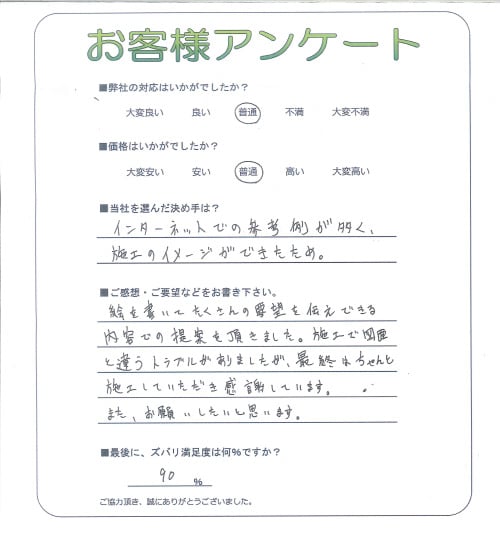 お客様アンケート
■弊社の対応はいかがでしたか？
大変良い 良い 普通 不満 大変不満
■価格はいかがでしたか？
大変安い 安い 普通 高い 大変高い
■当社を選んだ決め手は？
インターネットでの参考例が多く、
施工のイメージができたため。
■ご感想・ご要望などをお書き下さい。
絵を書いてたくさんの要望を伝えできる
内容での提案を頂きました。施工で図面
と違うトラブルがありましたが、最終はちゃんと
施工していただき感謝しています。
また、お願いしたいと思います。
■最後に、ズバリ満足度は何％ですか？
90 %
ご協力頂き、誠にありがとうございました。